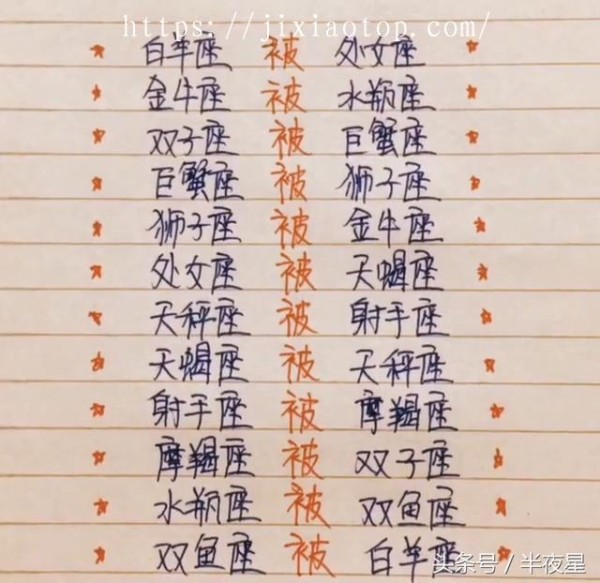 https://jixiaotop.com/
白羊座 被 处女座
金牛座 被 水瓶座
双子座 被 巨蟹座
巨蟹座 被 狮子座
狮子座 被 金牛座
处女座 被 天蝎座
天秤座 被 射手座
天蝎座 被 天秤座
射手座 被 摩羯座
摩羯座 被 双子座
水瓶座 被 双鱼座
双鱼座 被 白羊座
头条号/半夜星